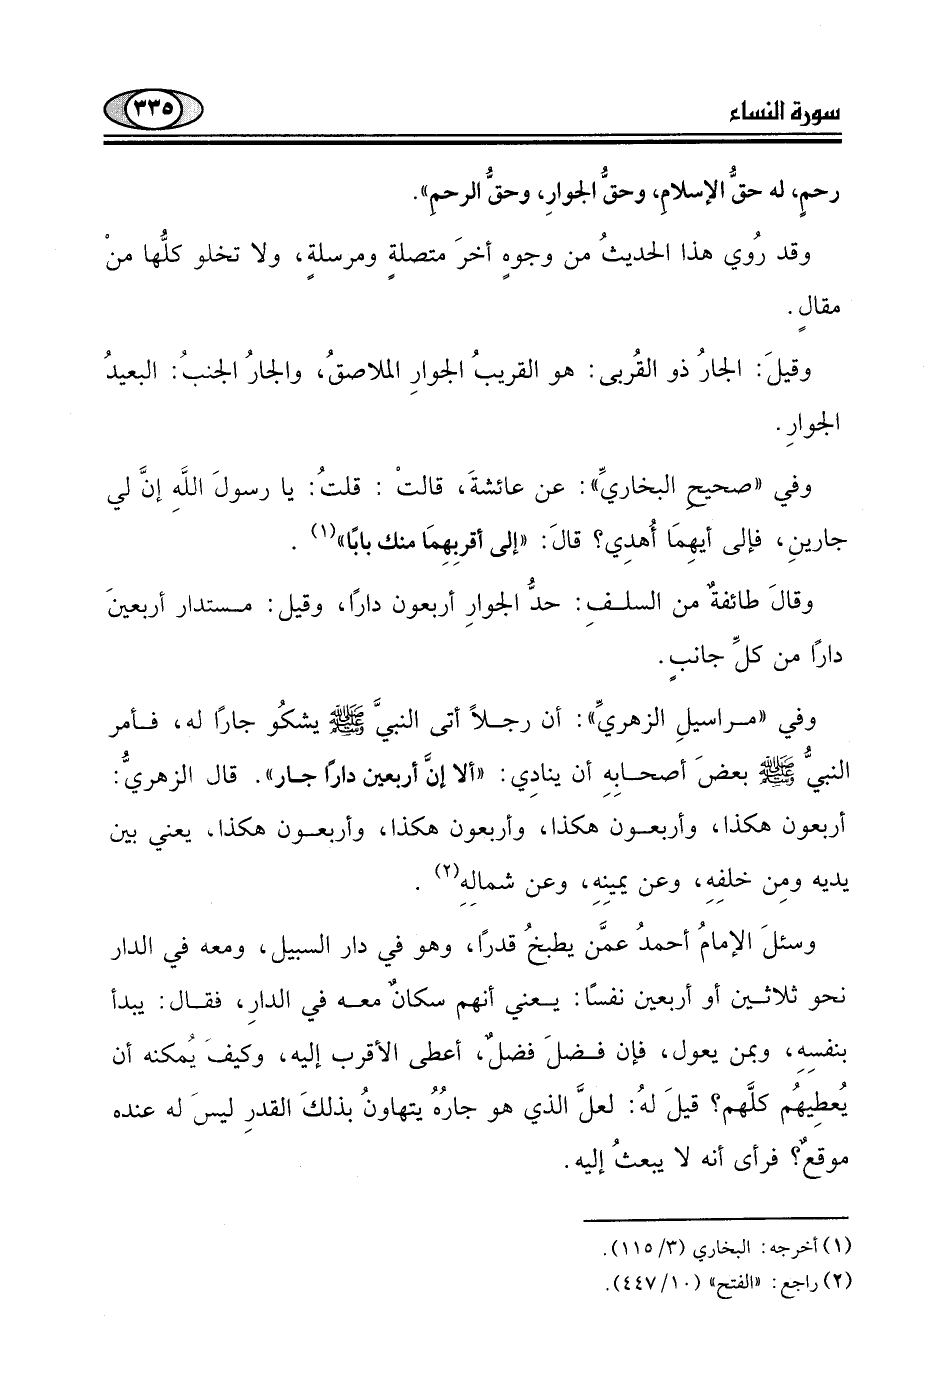 سورة النساء ٣٣٥
رحمٍ، له حقُّ الإسلامِ، وحقُّ الجوارِ، وحقُّ الرحمِ».
وقد رُوي هذا الحديثُ من وجوهٍ أخرَ متصلةٍ ومرسلةٍ، ولا تخلو كلُّها منْ
مقالٍ.
وقيلَ: الجارُ ذو القُربى: هو القريبُ الجوارِ الملاصقُ، والجارُ الجنبُ: البعيدُ
الجوارِ.
وفي «صحيحِ البخاريِّ»: عن عائشةَ، قالتْ: قلتُ: يا رسولَ اللَّهِ إنَّ لي
جارينِ، فإلى أيهِمَا أُهدِي؟ قالَ: «إلى أقربِهِمَا منك بابًا»(١).
وقالَ طائفةٌ من السلفِ: حدُّ الجوارِ أربعون دارًا، وقيل: مستدار أربعينَ
دارًا من كلِّ جانبٍ.
وفي «مراسيلِ الزهريِّ»: أن رجلاً أتى النبيَّ ﷺ يشكُو جارًا له، فأمر
النبيُّ ﷺ بعضَ أصحابِهِ أن ينادِي: «ألا إنَّ أربعين دارًا جار». قال الزهريُّ:
أربعون هكذا، وأربعون هكذا، وأربعون هكذا، وأربعون هكذا، يعني بين
يديه ومِن خلفِهِ، وعن يمينِهِ، وعن شمالِهِ(٢).
وسئلَ الإمامُ أحمدُ عمَّن يطبخُ قدرًا، وهو في دار السبيل، ومعه في الدار
نحو ثلاثين أو أربعين نفسًا: يعني أنهم سكانٌ معه في الدارِ، فقال: يبدأ
بنفسِهِ، وبمن يعول، فإن فضلَ فضلٌ، أعطى الأقرب إليه، وكيفَ يُمكنه أن
يُعطِيهُم كلَّهم؟ قيلَ لهُ: لعلَّ الذي هو جارُهُ يتهاونُ بذلكَ القدرِ ليسَ له عنده
موقعٌ؟ فرأى أنه لا يبعثُ إليه.
(١) أخرجه: البخاري (٣/ ١١٥).
(٢) راجع: «الفتح» (١٠/ ٤٤٧).